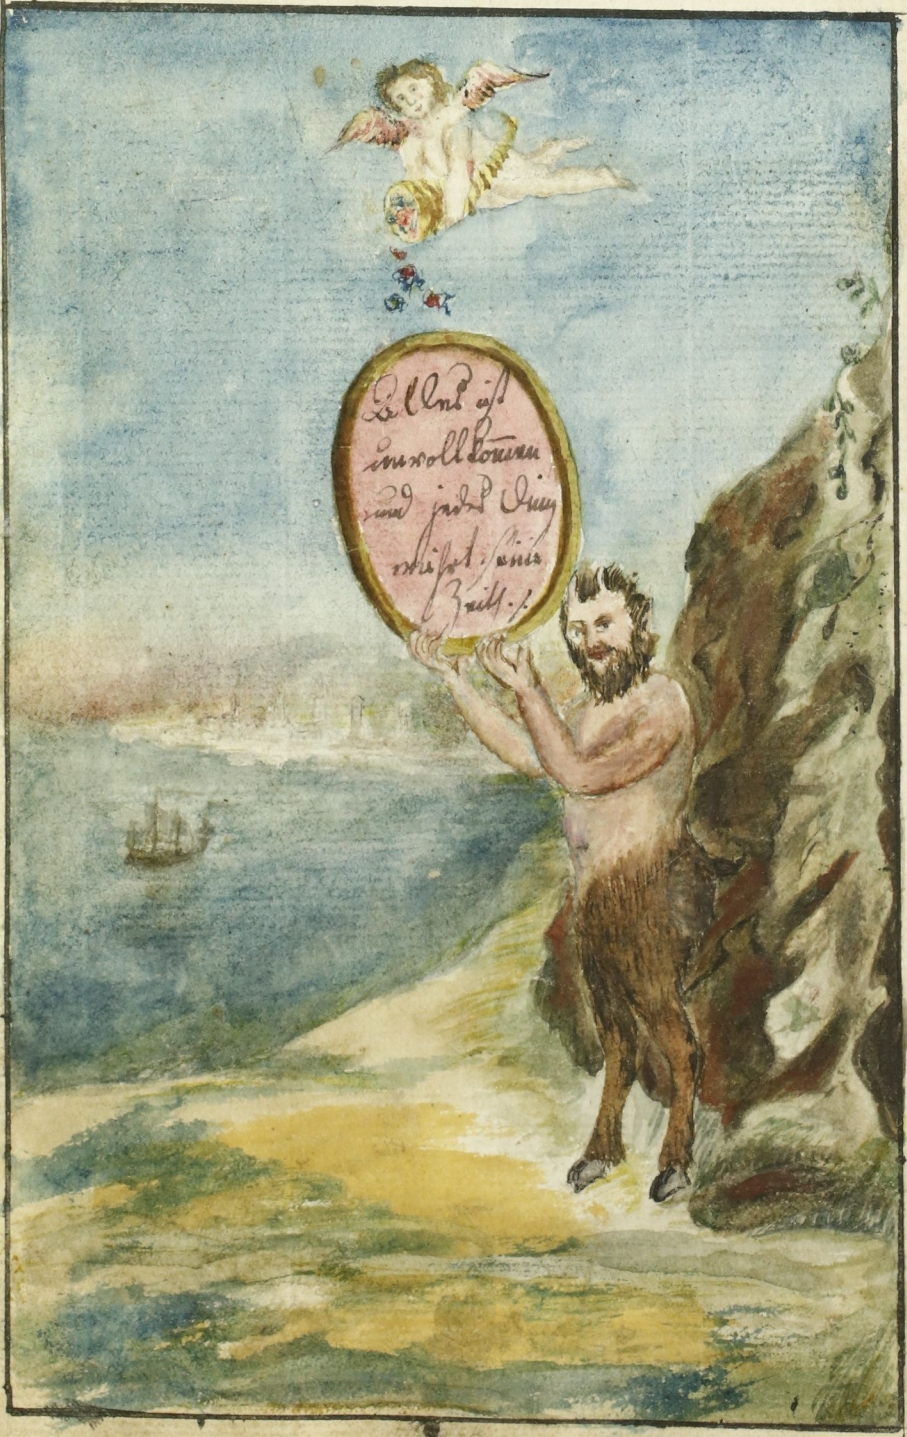 Alles ist
unvollkom̅en
und jedes Ding
währt seine
Zeitt.